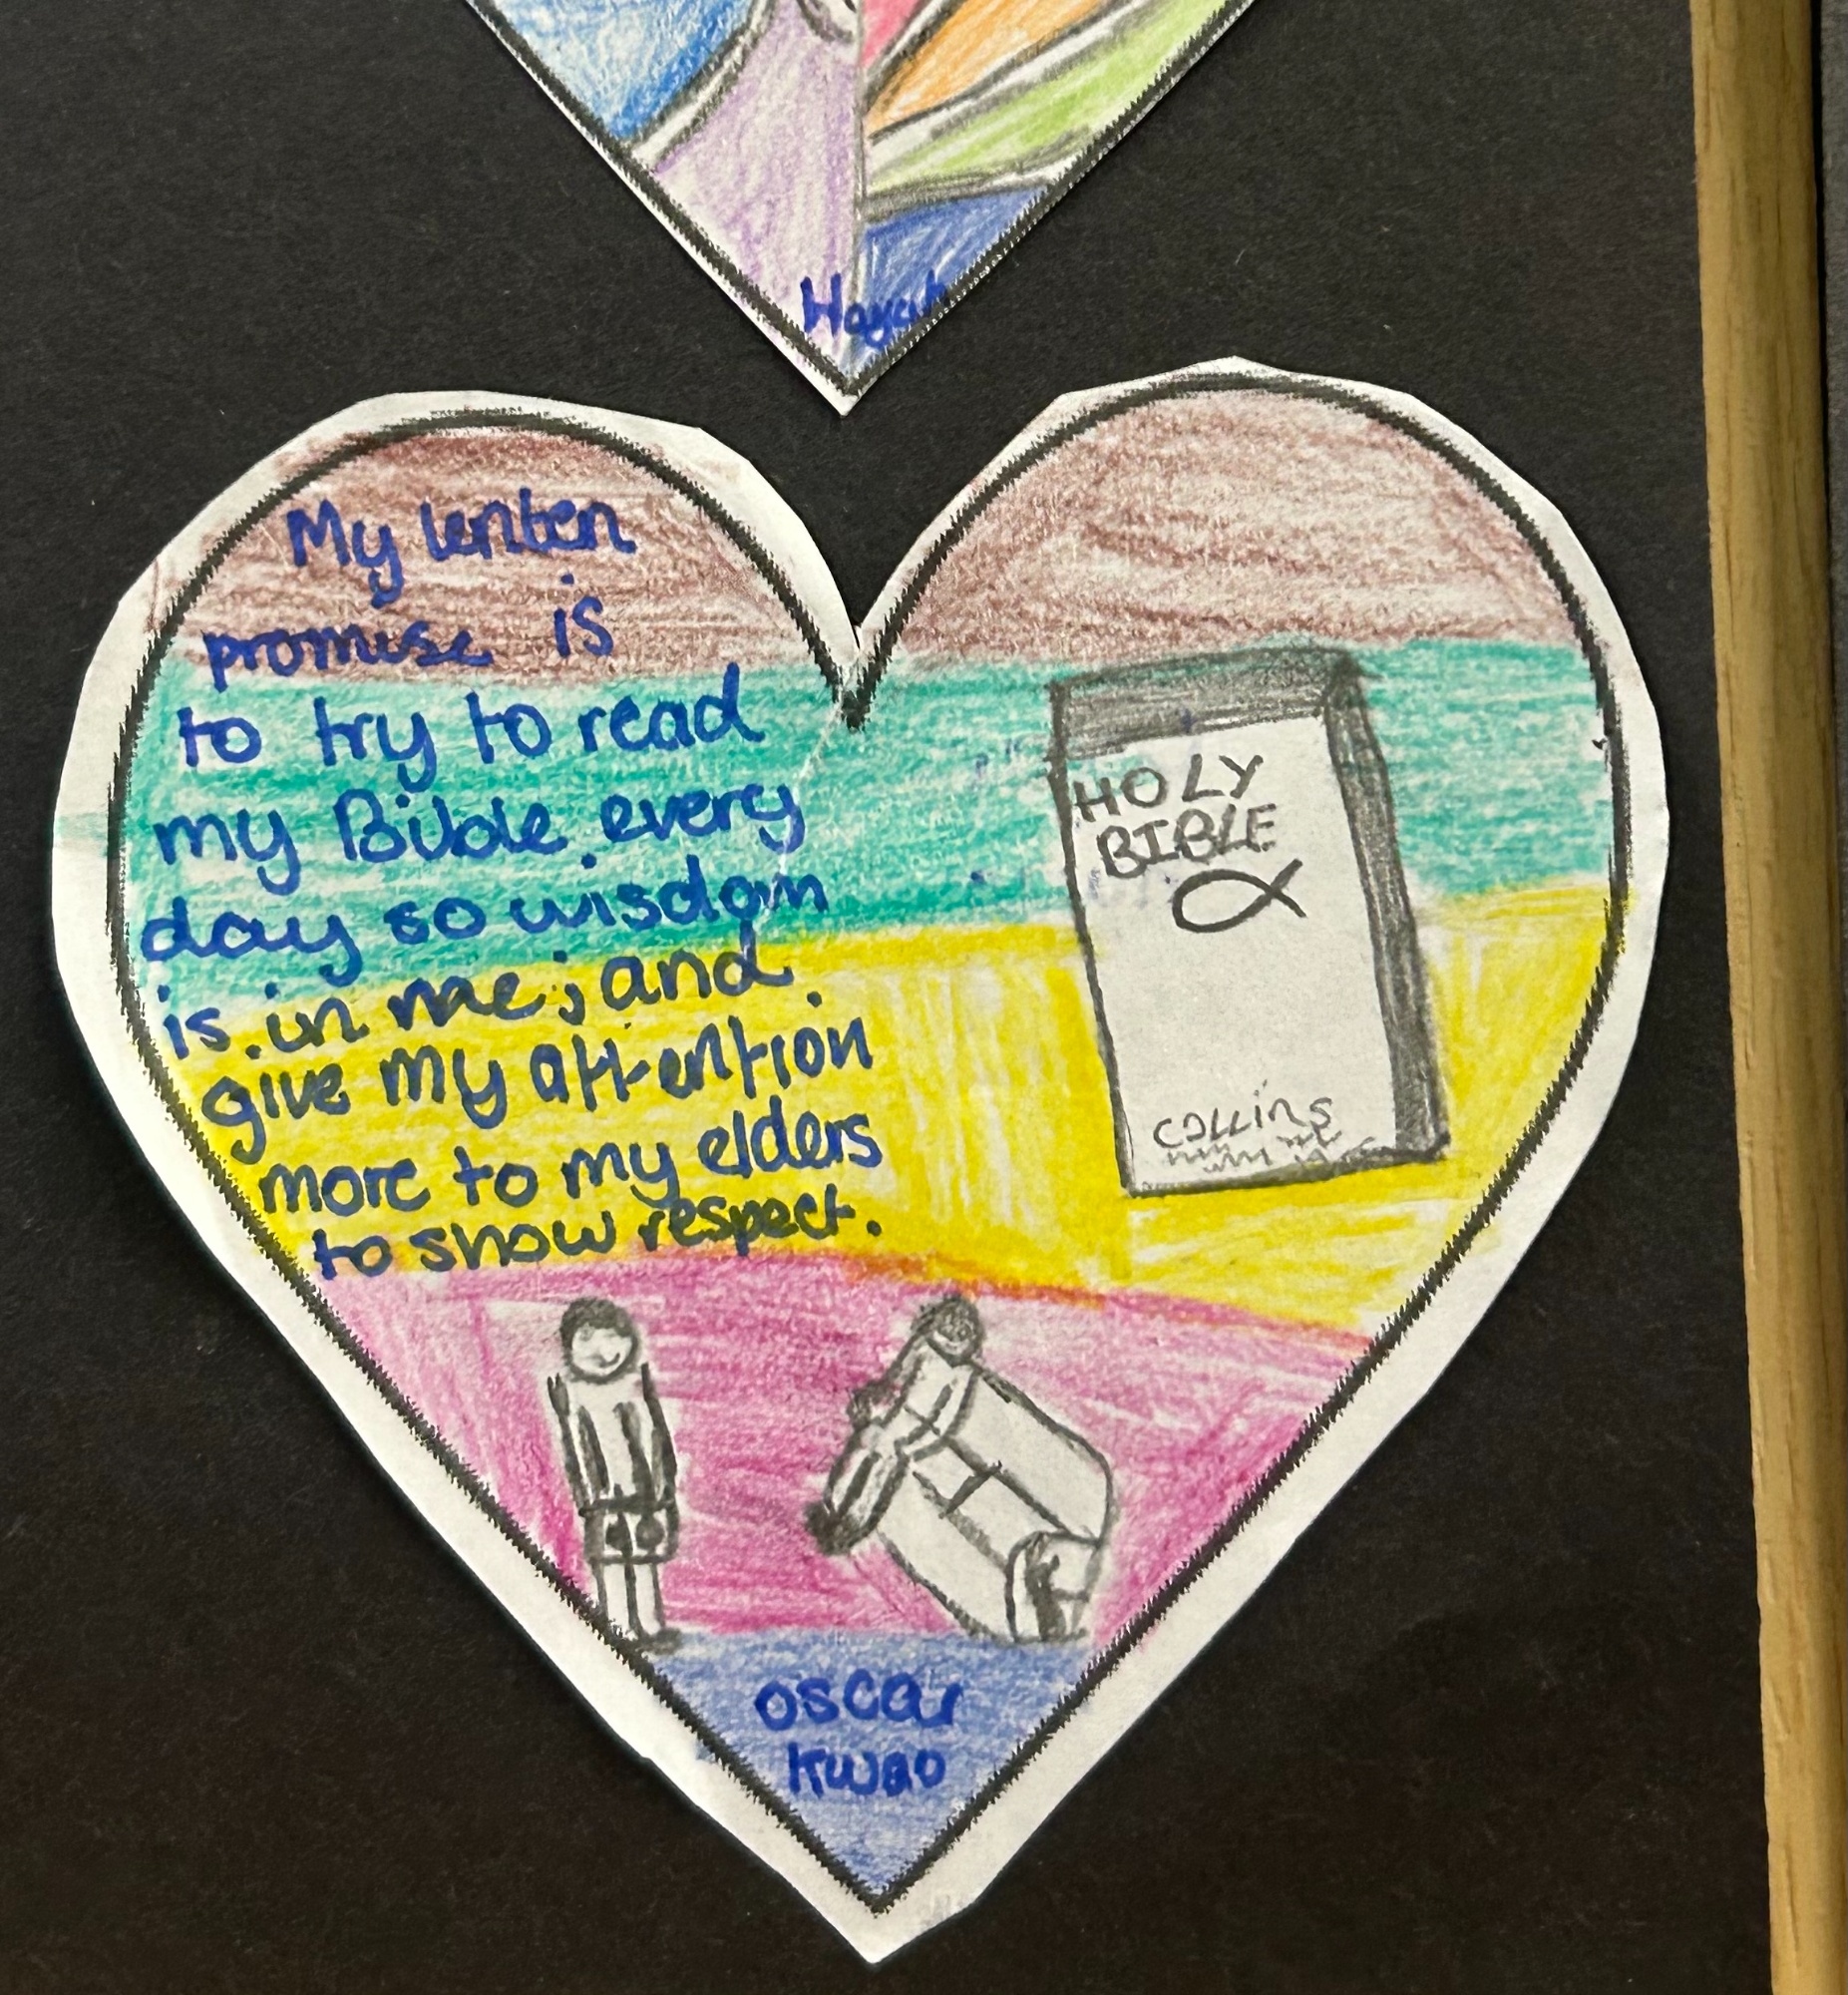 Hayah
My lenten
promise is
to try to read
my Bible every
day so wisdom
is in me; and
give my attention
more to my elders
to show respect.
HOLY
BIBLE
COLLINS
Oscar
Kwao